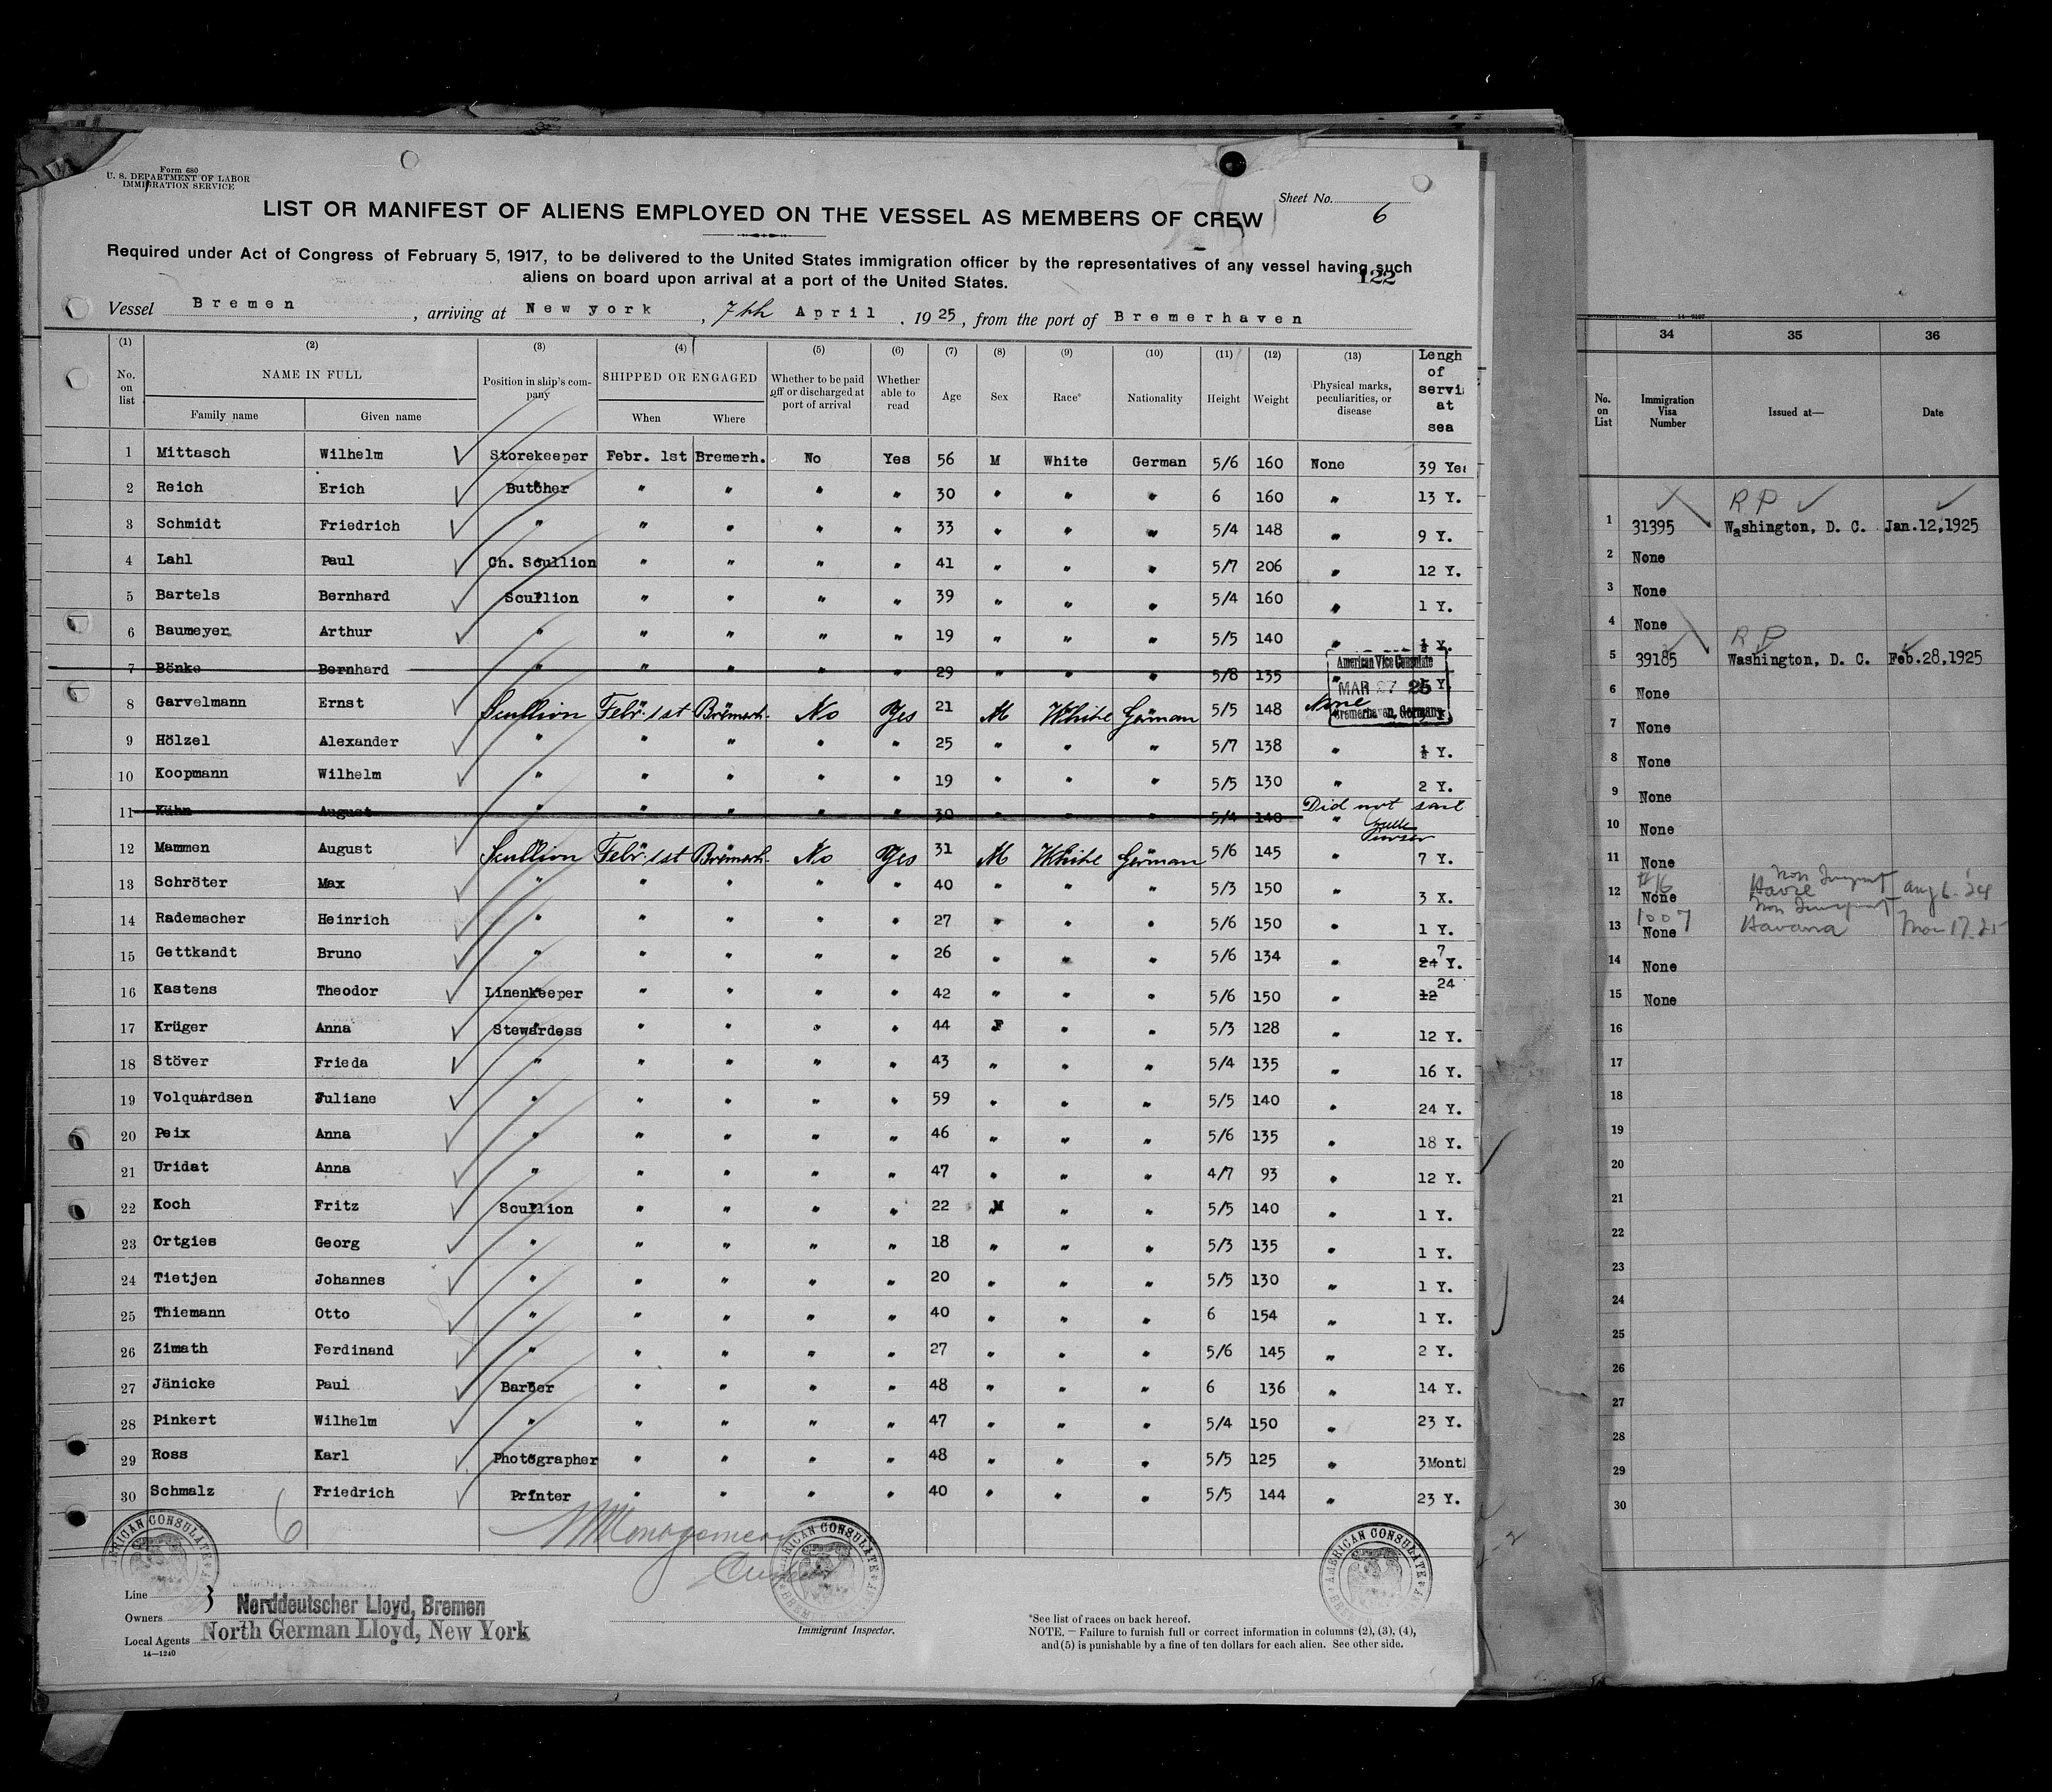 Form 680
U. S. DEPARTMENT OF LABOR
IMMIGRATION SERVICE
Sheet No. 6
LIST OR MANIFEST OF ALIENS EMPLOYED ON THE VESSEL AS MEMBERS OF CREW
Required under Act of Congress of February 5, 1917, to be delivered to the United States immigration officer by the representatives of any vessel having such
aliens on board upon arrival at a port of the United States.
122
Vessel Bremen, arriving at New york, 7th April, 1925, from the port of Bremerhaven
(1) (2) (3) (4) (5) (6) (7) (8) (9) (10) (11) (12) (13)
No. on list NAME IN FULL Family name Given name Position in ship's company SHIPPED OR ENGAGED When Where Whether to be paid off or discharged at port of arrival Whether able to read Age Sex Race* Nationality Height Weight Physical marks, peculiarities, or disease Lengh of servi at sea
1 Mittasch Wilhelm Storekeeper Febr. 1st Bremerh. No Yes 56 M White German 5/6 160 None 39 Yea
2 Reich Erich Butcher " " " " 30 " " " 6 160 " 13 Y.
3 Schmidt Friedrich " " " " " 33 " " " 5/4 148 " 9 Y.
4 Lahl Paul Ch. Scullion " " " " 41 " " " 5/7 206 " 12 Y.
5 Bartels Bernhard Scullion " " " " 39 " " " 5/4 160 " 1 Y.
6 Baumeyer Arthur " " " " " 19 " " " 5/5 140 " ½ Y.
7 Bönke Bernhard " " " " " 29 " " " 5/8 135 " Y.
American Vice Consulate
MAR 27 25
Bremerhaven, Germany
8 Garvelmann Ernst Scullion Febr. 1st Bremerh. No Yes 21 M White German 5/5 148 None
9 Hölzel Alexander " " " " " 25 " " " 5/7 138 " ½ Y.
10 Koopmann Wilhelm " " " " " 19 " " " 5/5 130 " 2 Y.
11 Kühn August " " " " " 30 " " " 5/4 140 " Did not sail
Purser
12 Mammen August Scullion Febr. 1st Bremerh. No Yes 31 M White German 5/6 145 " 7 Y.
13 Schröter Max " " " " " 40 " " " 5/3 150 " 3 X.
14 Rademacher Heinrich " " " " " 27 " " " 5/6 150 " 1 Y.
15 Gettkandt Bruno " " " " " 26 " " " 5/6 134 " 24 7 Y.
16 Kastens Theodor Linenkeeper " " " " 42 " " " 5/6 150 " 12 24
17 Krüger Anna Stewardess " " " " 44 F " " 5/3 128 " 12 Y.
18 Stöver Frieda " " " " " 43 " " " 5/4 135 " 16 Y.
19 Volquardsen Juliane " " " " " 59 " " " 5/5 140 " 24 Y.
20 Peix Anna " " " " " 46 " " " 5/6 135 " 18 Y.
21 Uridat Anna " " " " " 47 " " " 4/7 93 " 12 Y.
22 Koch Fritz Scullion " " " " 22 M " " 5/5 140 " 1 Y.
23 Ortgies Georg " " " " " 18 " " " 5/3 135 " 1 Y.
24 Tietjen Johannes " " " " " 20 " " " 5/5 130 " 1 Y.
25 Thiemann Otto " " " " " 40 " " " 6 154 " 1 Y.
26 Zimath Ferdinand " " " " " 27 " " " 5/6 145 " 2 Y.
27 Jänicke Paul Barber " " " " 48 " " " 6 136 " 14 Y.
28 Pinkert Wilhelm " " " " " 47 " " " 5/4 150 " 23 Y.
29 Ross Karl Photographer " " " " 48 " " " 5/5 125 " 3Month
30 Schmalz Friedrich Printer " " " " 40 " " " 5/5 144 " 23 Y.
6
Montgomery
AMERICAN CONSULATE
Line
Owners 3 Norddeutscher Lloyd, Bremen
Local Agents North German Lloyd, New York
14—1240
Immigrant Inspector.
*See list of races on back hereof.
NOTE. — Failure to furnish full or correct information in columns (2), (3), (4),
and (5) is punishable by a fine of ten dollars for each alien. See other side.
34 35 36
No. on List Immigration Visa Number Issued at— Date
R P
1 31395 Washington, D. C. Jan.12,1925
2 None
3 None
4 None
R P
5 39185 Washington, D. C. Feb.28,1925
6 None
7 None
8 None
9 None
10 None
11 None
12 #16 None Havre Aug 6-24
13 1007 None Havana Mar 17-25
14 None
15 None
16
17
18
19
20
21
22
23
24
25
26
27
28
29
30